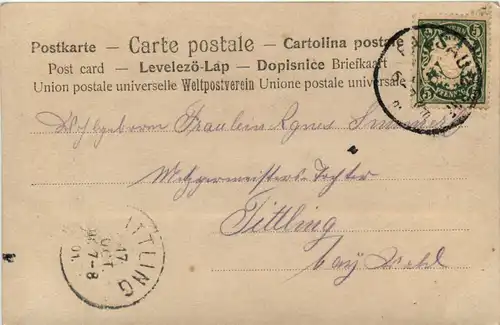 Postkarte – Carte postale – Cartolina postale
Post card – Levelező-Lap – Dopisnice Briefkaart
Union postale universelle Weltpostverein Unione postale universale
PASSAU
5 5
PFENNIG
Wohlgeboren Fräulein Agnes
Metzgermeisters-Tochter
Tittling
bay. Wald
TITTLING
17
OCT.
7-8
01